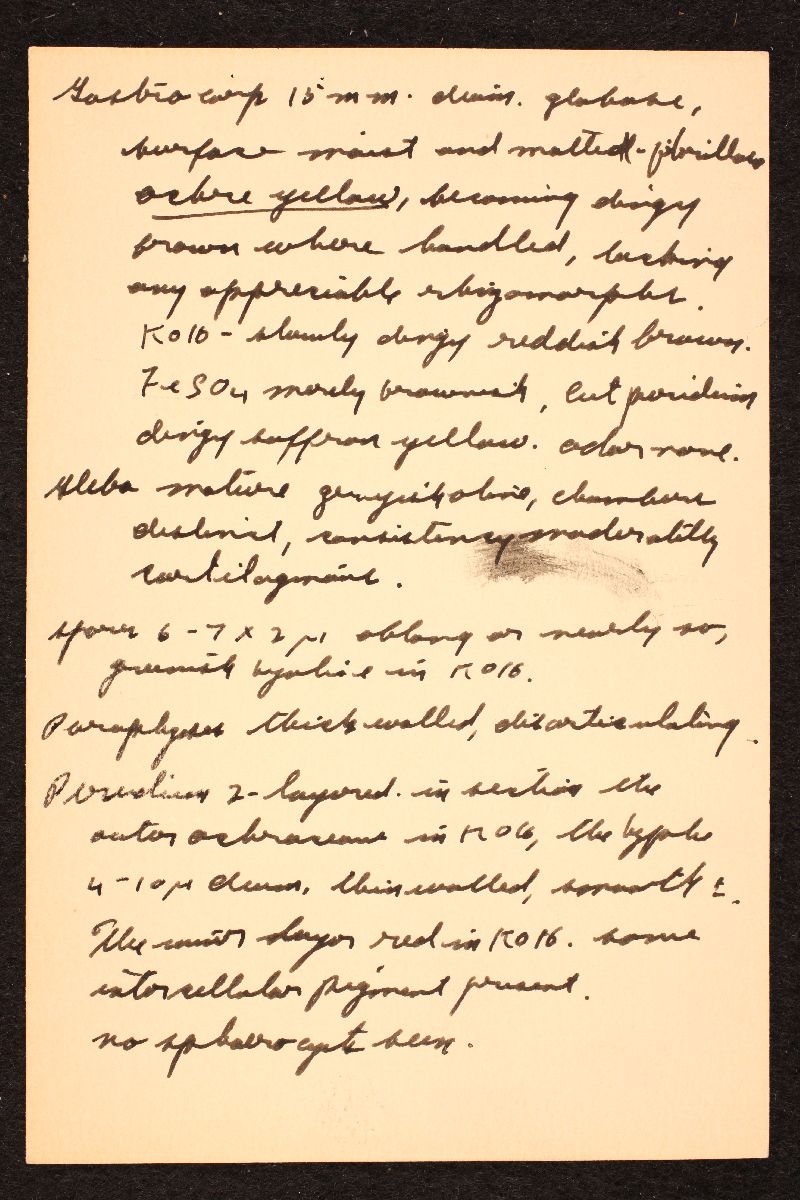 Gastrocarp 15 mm. diam. globose,
surface moist and matted-fibrillose
ochre yellow, becoming dingy
brown where handled, lacking
any appreciable rhizomorphs.
KOH - slowly dingy reddish brown.
FeSO4 merely brownish, cut peridium
dingy saffron yellow. odor none.
Gleba mature grayish olive, chambers
distinct, consistency moderately
cartilaginous.
spores 6-7 x 2 µ oblong or nearly so,
greenish hyaline in KOH.
Paraphyses thick walled, disarticulating.
Peridium 2-layered. in section the
outer ochraceous in KOH, the hyphae
4-10 µ diam, thin walled, smooth ±.
The inner layer red in KOH. some
intercellular pigment present.
no sphaerocysts seen.